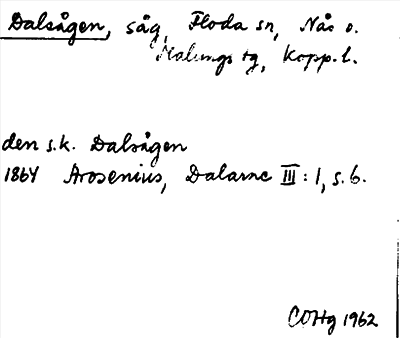 Dalsågen, såg, Floda sn, Nås o.
Malungs tg, Kopp. l.
den s.k. Dalsågen
1864 Arosenius, Dalarne III : 1, s. 6.
COHg 1962